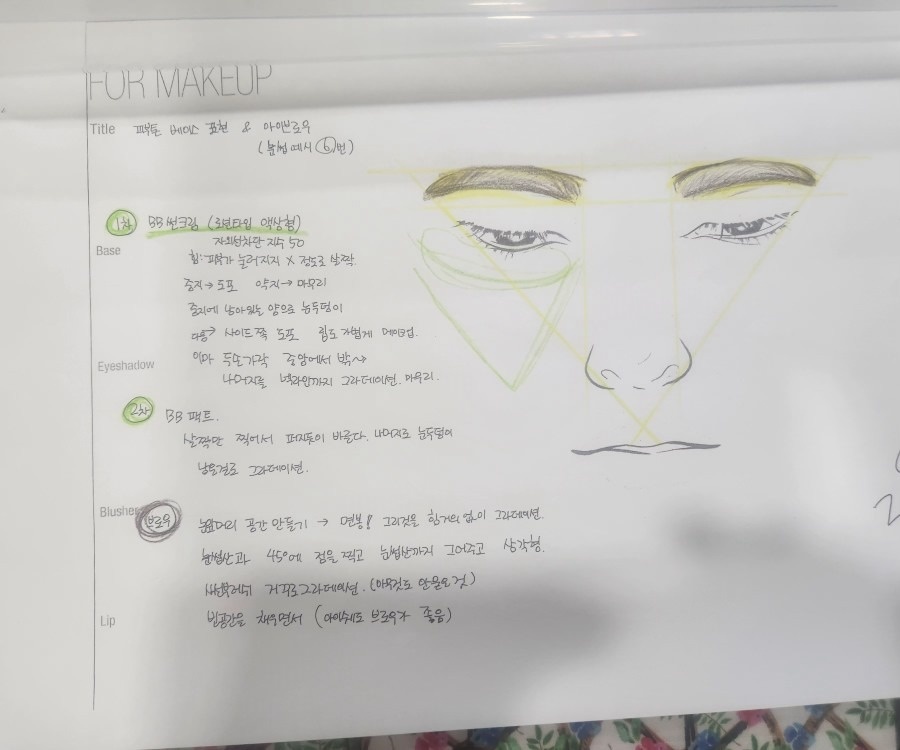 FOR MAKEUP
Title 피부톤 베이스 표현 & 아이브로우
(눈썹 예시 6번)
1차 BB썬크림 (로션타입 액상형)
자외선차단 지수 50
Base
힘: 피부가 눌러지지 X 정도로 살짝
중지→도포 약지→마무리
중지에 남아있는 양으로 눈두덩이
다음→ 사이드쪽 도포 립도 가볍게 메이크업.
Eyeshadow
이마 두손가락 중앙에서 밖
나머지를 넥라인까지 그라데이션. 마무리.
2차 BB 팩트.
살짝만 찍어서 바른다. 나머지로 눈두덩이
남은걸로 그라데이션.
Blusher
브로우 공간 만들기 → 면봉! 그리것을 힘거의 없이 그라데이션.
눈썹산과 45°에 점을 찍고 눈썹산까지 그어주고 삼각형.
거꾸로 그라데이션. (아무것도 안묻은것)
Lip
빈공간을 채우면서 (아이섀도 브로우가 좋음)